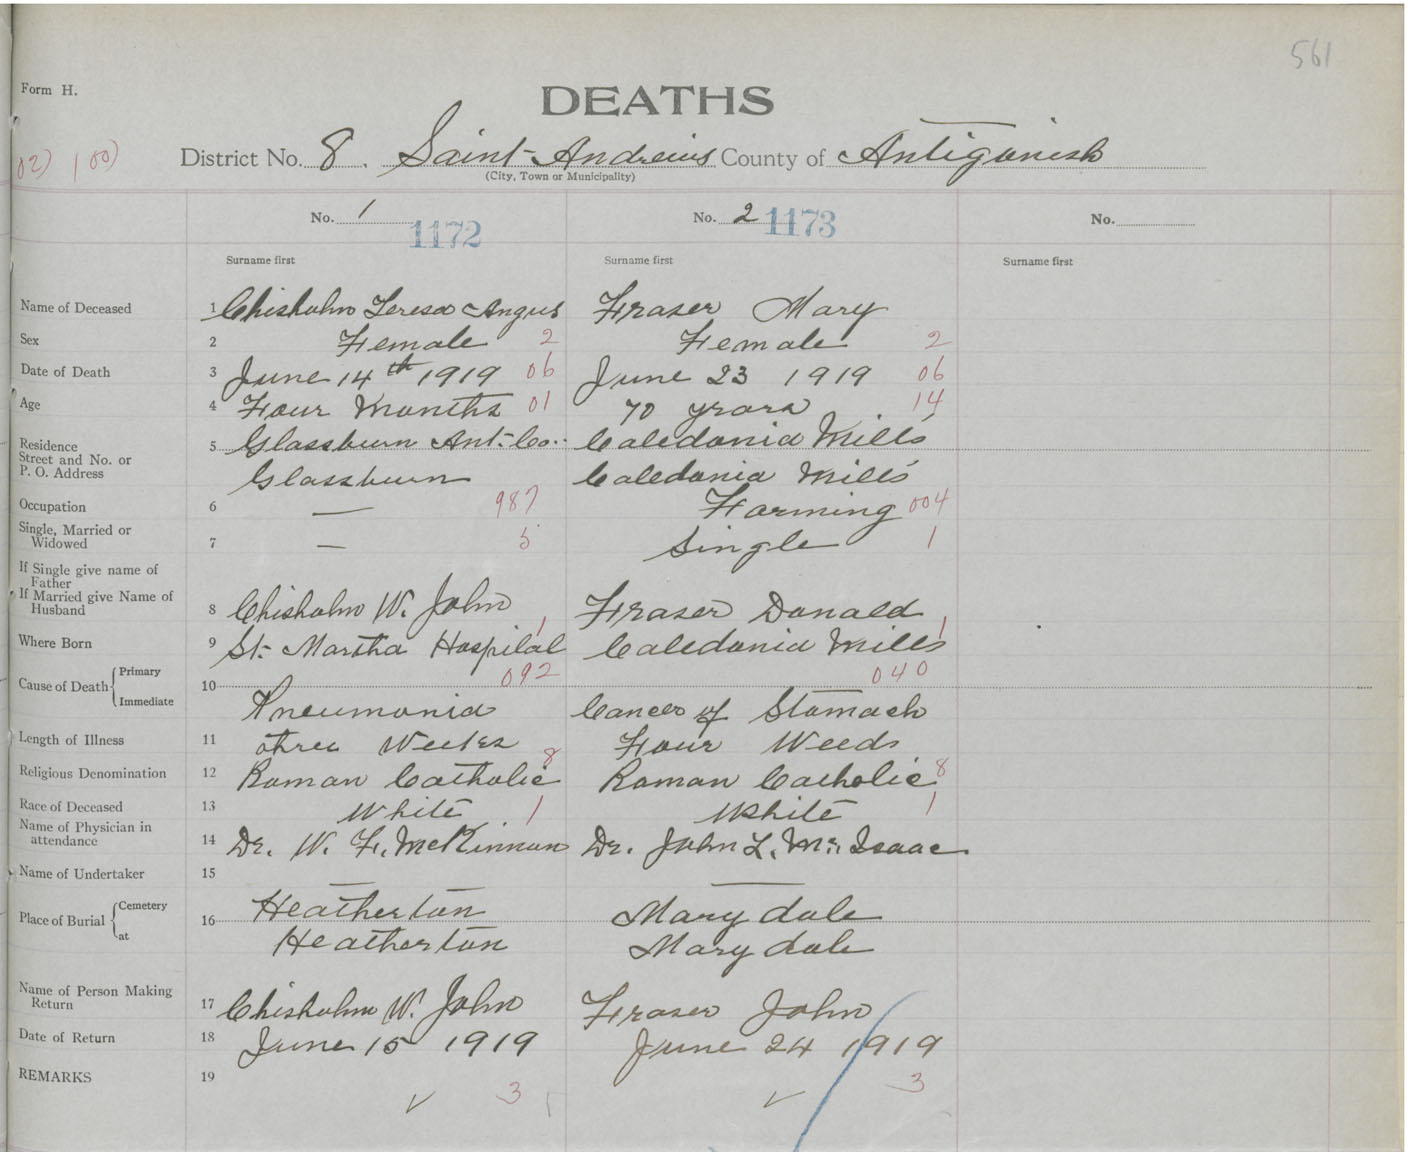 561
Form H.
DEATHS
02) 1 00)
District No. 8. Saint-Andrews County of Antigonish
(City, Town or Municipality)
No. 1 1172 No. 2 1173 No.
Surname first Surname first Surname first
Name of Deceased 1 Chisholm Teresa Angus Fraser Mary
Sex 2 Female 2 Female 2
Date of Death 3 June 14th 1919 06 June 23 1919 06
Age 4 Four Months 01 70 years 14
Residence
Street and No. or
P. O. Address
5 Glassburn Ant. Co. Caledonia Mills
Glassburn Caledonia Mills
Occupation 6 — 987 Farming 004
Single, Married or
Widowed
7 — 5 Single 1
If Single give name of
Father
If Married give Name of
Husband
8 Chisholm W. John 1 Fraser Donald 1
Where Born 9 St. Martha Hospital Caledonia Mills
092 040
Cause of Death { Primary
Immediate
10
Pneumonia Cancer of Stomach
Length of Illness 11 three Weeks Four Weeds
Religious Denomination 12 Roman Catholic 8 Roman Catholic 8
Race of Deceased 13 White 1 White 1
Name of Physician in
attendance
14 Dr. W. F. McKinnon Dr. John L. Mc. Isaac.
Name of Undertaker 15 — —
Place of Burial { Cemetery
at
16 Heatherton Marydale
Heatherton Marydale
Name of Person Making
Return
17 Chisholm W. John Fraser John
Date of Return 18 June 15 1919 June 24 1919
REMARKS 19
3 3